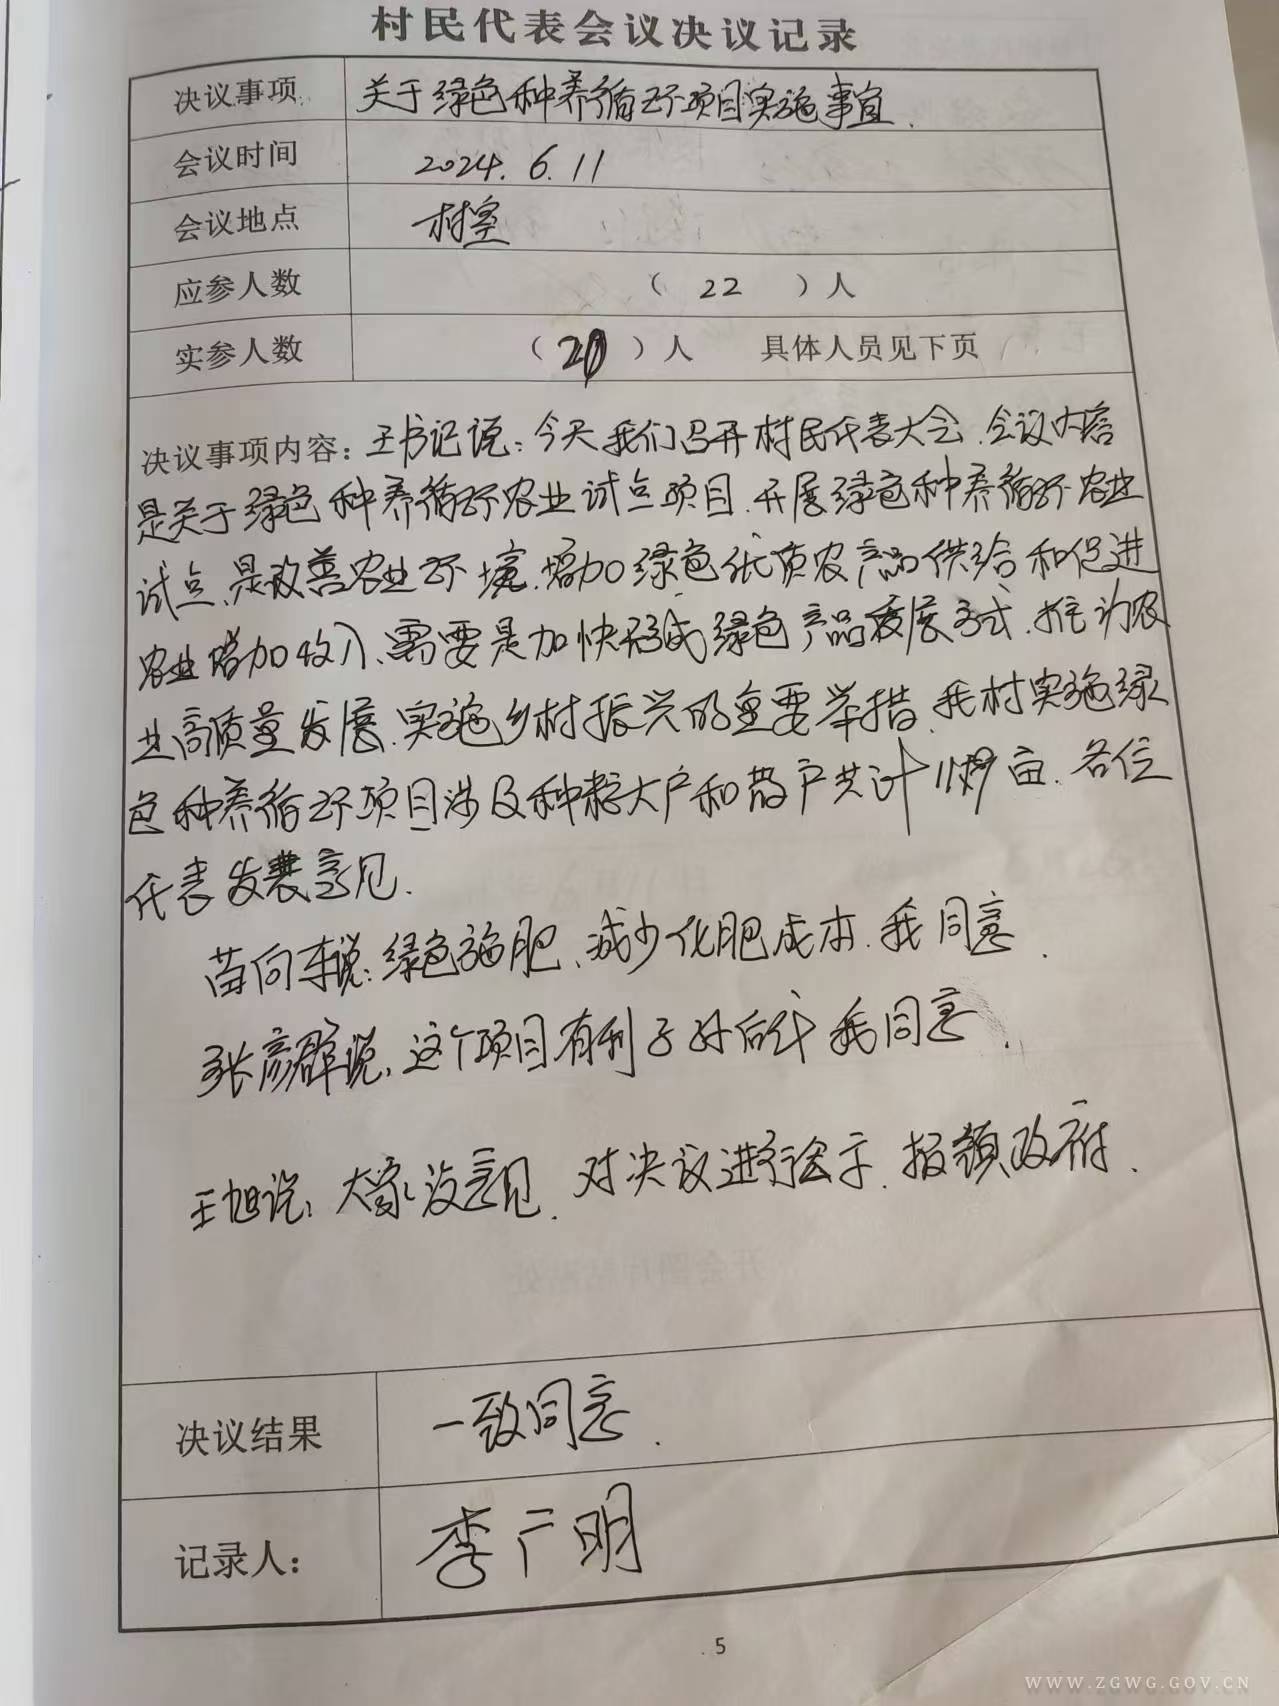 村民代表会议决议记录
决议事项 关于绿色种养循环项目实施事宜.
会议时间 2024.6.11
会议地点 村室
应参人数 （ 22 ）人
实参人数 （ ）人 具体人员见下页
决议事项内容：王书记说：今天我们召开村民代表大会.会议内容
是关于绿色种养循环农业试点项目.开展绿色种养循环农业
试点、是改善农业环境.增加绿色优质农产品供给和促进
农业增加收入、需要是加快形成绿色产品发展方式.推动农
业高质量发展.实施乡村振兴的重要举措.我村实施绿
色种养循环项目涉及种粮大户和散户共计 亩.各位
代表发表意见.
苗向东说：绿色施肥、减少化肥成本.我同意.
张彦群说、这个项目有利于好后代我同意.
王旭说：大家没意见.对决议进行公示.报镇政府.
决议结果 一致同意.
记录人： 李广明
5
WWW.ZGWG.GOV.CN